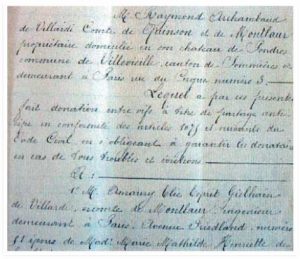 M. Raymond Archambaud
de Villardi Comte de Quinson et de Montlaur
propriétaire domicilié en son chateau de Pondres
commune de Villevieille, canton de Sommières et
demeurant à Paris rue du Cirque numéro 3.
Lequel a par ces présentes
fait donation entre vifs à titre de partage anti-
cipé en conformité des articles 1075 et suivants du
Code Civil, en s'obligeant à garantir les donataires
en cas de tous troubles et évictions
À :
1° M. Amaury Elie Esprit
de Villardi, vicomte de Montlaur ingénieur
demeurant à Paris, Avenue Friedland, numéro
époux de Madᵉ Marie Mathilde Henriette des